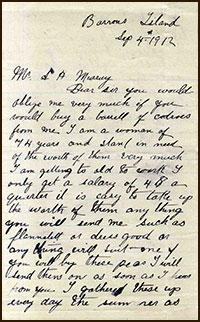 Barrons Island
Sep 4th 1912
Mr. S A Murray
Dear ser you would
oblige me very much if you
would buy a barell of codives
from me. I am a woman of
74 years and stant in need
of the worth of them very much
I am geting to old to work I
only get a salary of 48 a
quarter it is easy to take up
the worth of them any thing
you will send me such as
flannelett or dress good or
any thing will suit me if
you will by thees peas I will
send them on as soon as I hear
from you I gathered these up
every day the sum rer as